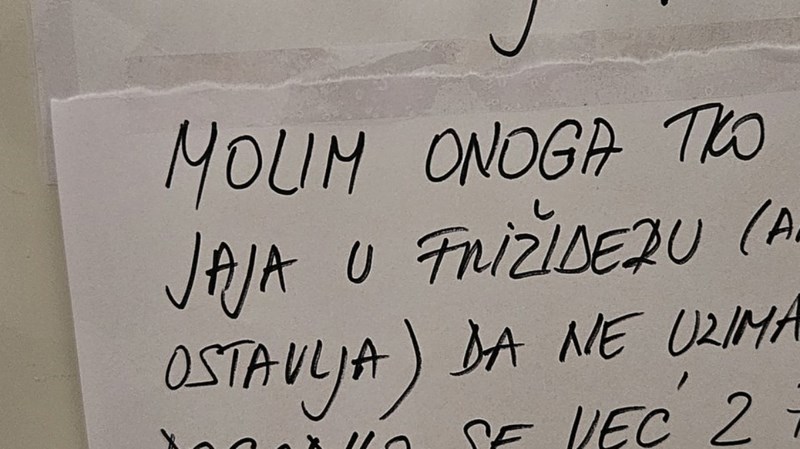 MOLIM ONOGA TKO
JAJA U FRIŽIDERU (
OSTAVLJA) DA NE UZIMA
SE VEĆ 2